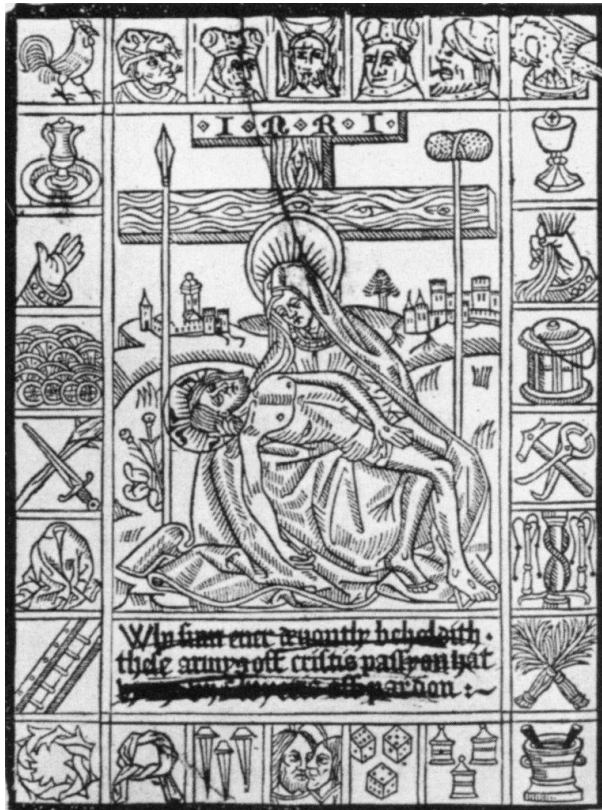 I N R I
Who sum ever devoutly beholdith
these armys off cristis passyon hat
off pardon :~